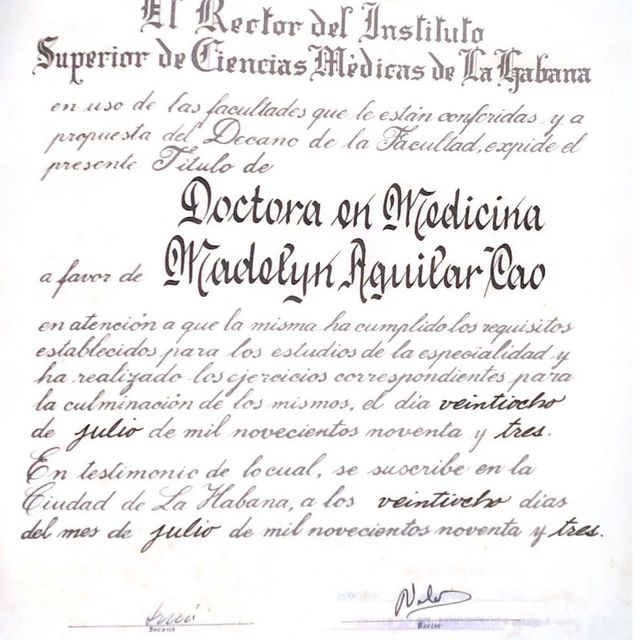 El Rector del Instituto
Superior de Ciencias Médicas de La Habana
en uso de las facultades que le están conferidas y a
propuesta del Decano de la Facultad, expide el
presente Título de
Doctora en Medicina
a favor de Madelyn Aguilar Cao
en atención a que la misma ha cumplido los requisitos
establecidos para los estudios de la especialidad y
ha realizado los ejercicios correspondientes para
la culminación de los mismos, el día veintiocho
de julio de mil novecientos noventa y tres.
En testimonio de lo cual, se suscribe en la
Ciudad de La Habana, a los veintiocho días
del mes de julio de mil novecientos noventa y tres.
Decano
Rector